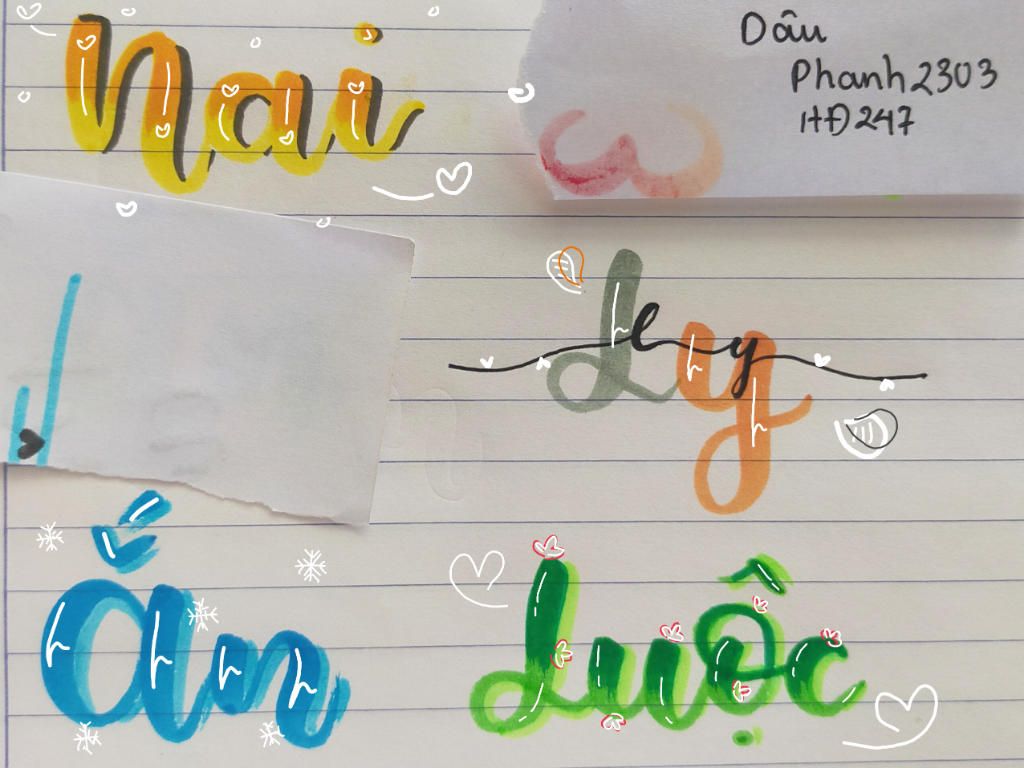 Nai
Dâu
Phanh2303
HĐ247
Ly
ly
Ắn
Luộc